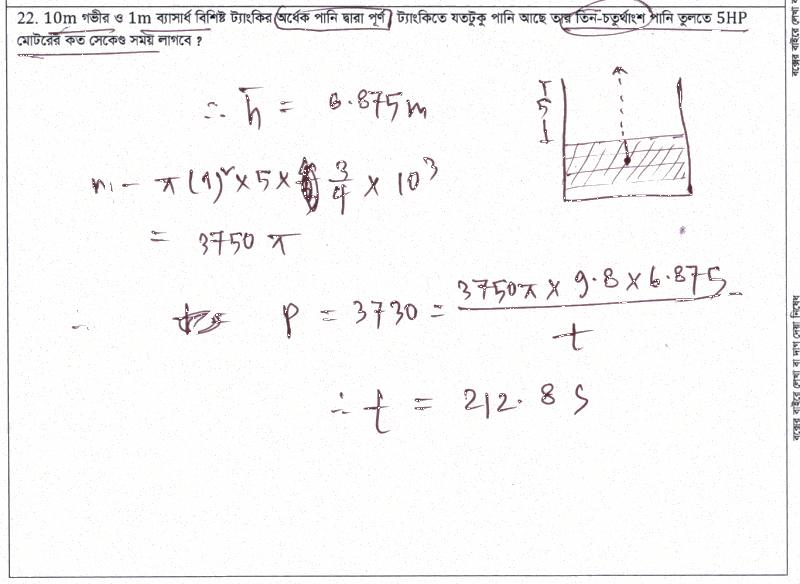 22. 10m গভীর ও 1m ব্যাসার্ধ বিশিষ্ট ট্যাংকির অর্ধেক পানি দ্বারা পূর্ণ। ট্যাংকিতে যতটুকু পানি আছে তার তিন-চতুর্থাংশ পানি তুলতে 5HP
মোটরের কত সেকেন্ড সময় লাগবে ?
∴ h̄ = 6.875m
5
m = π(1)² × 5 × 3/4 × 10³
= 3750 π
∴ P = 3730 = 3750π × 9.8 × 6.875 / t
∴ t = 212.8 s
বক্সের বাইরে লেখা বা দাগ দেয়া নিষেধ